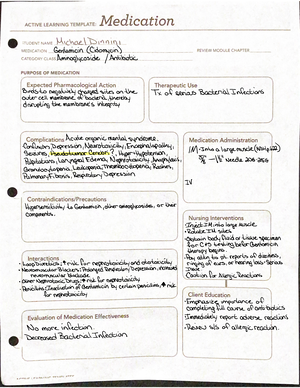 ACTIVE LEARNING TEMPLATE: Medication
STUDENT NAME Michael Dinnini
MEDICATION Gentamicin (Cidomycin)
REVIEW MODULE CHAPTER
CATEGORY CLASS Aminoglycoside / Antibiotic
PURPOSE OF MEDICATION
Expected Pharmacological Action
Binds to negatively charged sites on the
outer cell membrane of bacteria, thereby
disrupting the membrane's integrity
Therapeutic Use
Tx of serious Bacterial Infections
Complications Acute organic mental syndrome,
Confusion, Depression, Neurotoxicity, Encephalopathy,
Seizures, Hyper-Hypotension,
Palpitations, Laryngeal Edema, Nephrotoxicity, Anaphylaxis,
Granulocytopenia, Leukopenia, Thrombocytopenia, Rashes,
Pulmonary Fibrosis, Respiratory Depression
Medication Administration
IM - Into a large muscle
Needle
IV
Contraindications/Precautions
Hypersensitivity to Gentamicin, other aminoglycosides, or their
components.
Nursing Interventions
Inject IM into large muscle
Rotate IM sites
Obtain body fluid or tissue specimen
for C+S before Gentamicin
therapy begins
Pay attn to pt. reports of dizziness,
ringing of ears, or hearing loss
Caution for Allergic Reactions
Interactions
Loop Diuretics: ↑ risk for nephrotoxicity and ototoxicity
Neuromuscular Blockers: Prolonged Respiratory Depression, increased
neuromuscular blockade
Other Nephrotoxic Drugs: ↑ risk for nephrotoxicity
Penicillins: Inactivation of Gentamicin by certain penicillins, ↑ risk
for nephrotoxicity
Client Education
Emphasize importance of
completing full course of antibiotics
Immediately report adverse reactions
Review s/s of allergic reaction.
Evaluation of Medication Effectiveness
No more infection.
Decreased Bacterial Infection